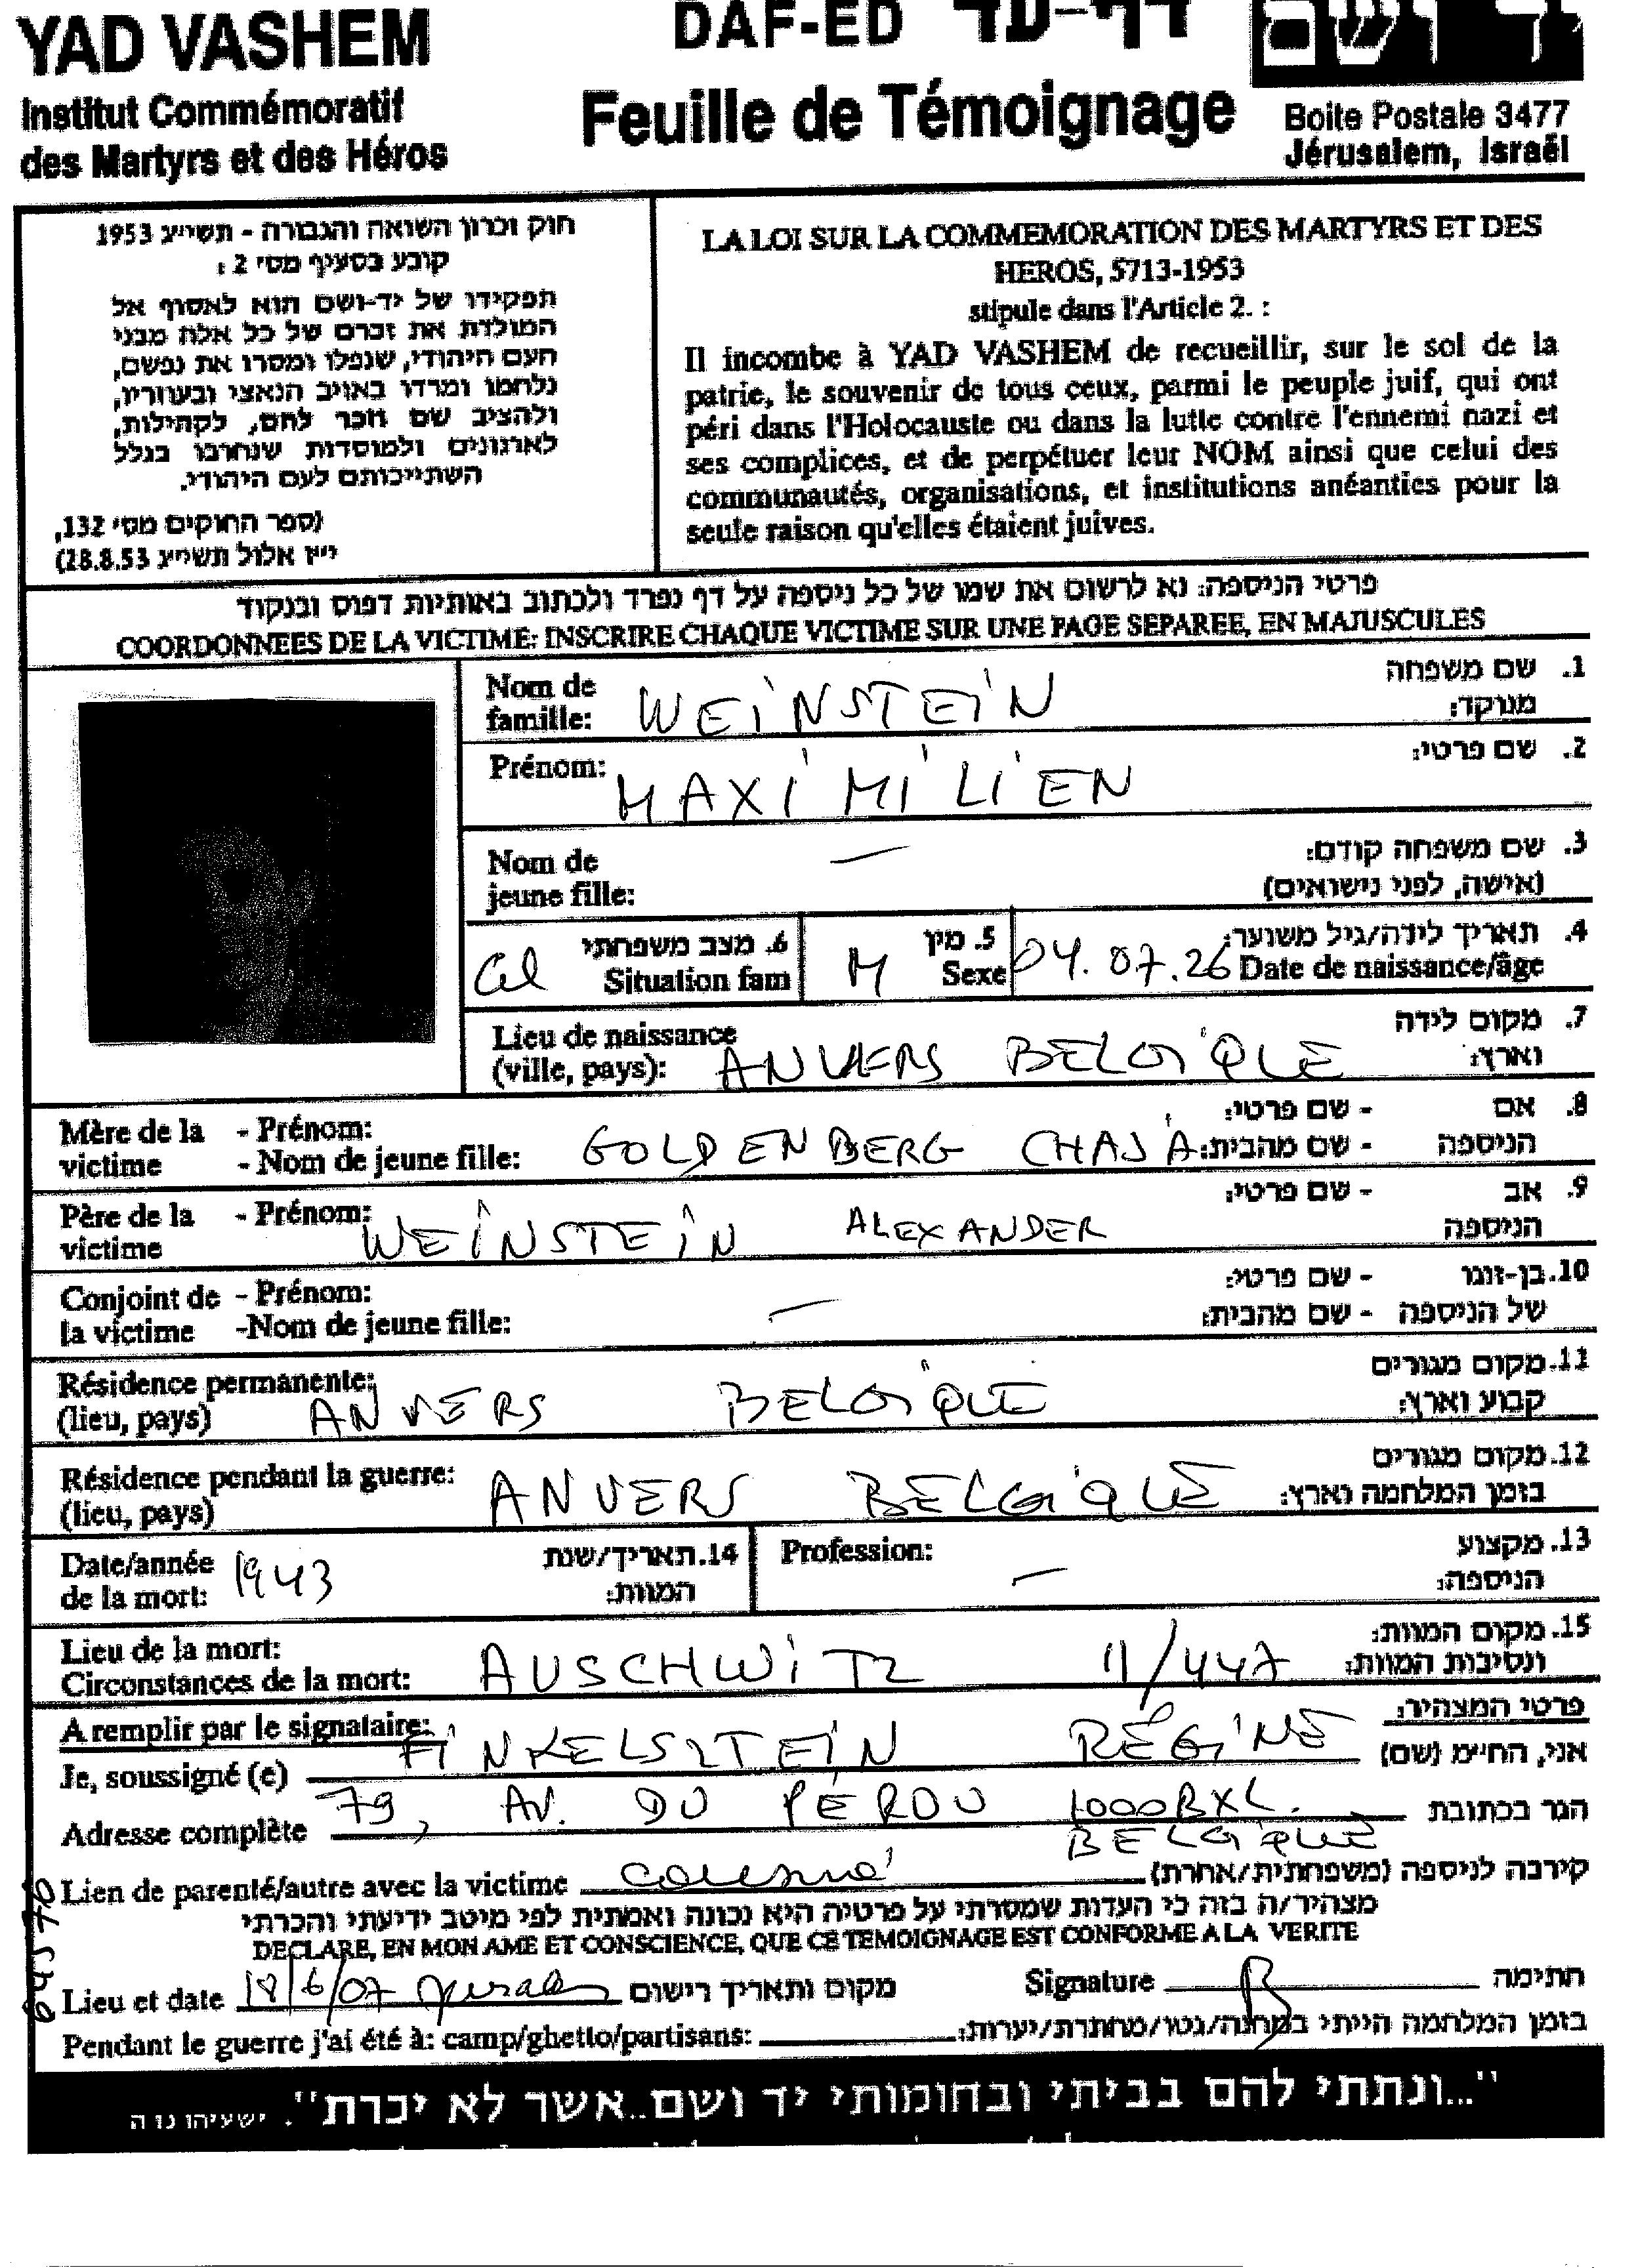 YAD VASHEM
Institut Commémoratif
des Martyrs et des Héros
DAF-ED דף-עד
Feuille de Témoignage
יד ושם
Boite Postale 3477
Jérusalem, Israël
חוק זכרון השואה והגבורה - תשי״ג 1953
קובע בסעיף מס׳ 2 :
תפקידו של יד-ושם הוא לאסוף אל
המולדת את זכרם של כל אלה מבני
העם היהודי, שנפלו ומסרו את נפשם,
נלחמו ומרדו באויב הנאצי ובעוזריו,
ולהציב שם וזכר להם, לקהילות,
לארגונים ולמוסדות שנחרבו בגלל
השתייכותם לעם היהודי.
(ספר החוקים מס׳ 132,
י״ז אלול תשי״ג 28.8.53)
LA LOI SUR LA COMMEMORATION DES MARTYRS ET DES
HEROS, 5713-1953
stipule dans l'Article 2. :
Il incombe à YAD VASHEM de recueillir, sur le sol de la
patrie, le souvenir de tous ceux, parmi le peuple juif, qui ont
péri dans l'Holocauste ou dans la lutte contre l'ennemi nazi et
ses complices, et de perpétuer leur NOM ainsi que celui des
communautés, organisations, et institutions anéanties pour la
seule raison qu'elles étaient juives.
פרטי הניספה: נא לרשום את שמו של כל ניספה על דף נפרד ולכתוב באותיות דפוס ובנקוד
COORDONNEES DE LA VICTIME: INSCRIRE CHAQUE VICTIME SUR UNE PAGE SEPAREE, EN MAJUSCULES
Nom de WEINSTEIN 1. שם משפחה
famille: מנוקד:
Prénom: MAXIMILIEN 2. שם פרטי:
Nom de — 3. שם משפחה קודם:
jeune fille: (אישה, לפני נישואים)
Cel 6. מצב משפחתי M 5. מין 04.07.26 4. תאריך לידה/גיל משוער:
Situation fam Sexe Date de naissance/âge
Lieu de naissance 7. מקום לידה
(ville, pays): ANVERS BELGIQUE וארץ:
Mère de la - Prénom: - שם פרטי: 8. אם
victime - Nom de jeune fille: GOLDENBERG CHAJA - שם מהבית: הניספה
Père de la - Prénom: WEINSTEIN ALEXANDER - שם פרטי: 9. אב
victime הניספה
Conjoint de - Prénom: — - שם פרטי: 10. בן-זוגו
la victime -Nom de jeune fille: - שם מהבית: של הניספה
Résidence permanente: 11. מקום מגורים
(lieu, pays) ANVERS BELGIQUE קבוע וארץ:
Résidence pendant la guerre: ANVERS BELGIQUE 12. מקום מגורים
(lieu, pays) בזמן המלחמה וארץ:
Date/année 1943 14. תאריך/שנת Profession: — 13. מקצוע
de la mort: המוות: הניספה:
Lieu de la mort: 15. מקום המוות:
Circonstances de la mort: AUSCHWITZ 11/447 ונסיבות המוות:
A remplir par le signataire: פרטי המצהיר:
Je, soussigné (e) FINKELSZTEIN RÉGINE אני, החי״מ (שם)
Adresse complète 79, AV. DU PÉROU 1000 BXL. הגר בכתובת
BELGIQUE
Lien de parenté/autre avec la victime cousine קירבה לניספה (משפחתית/אחרת)
מצהיר/ה בזה כי העדות שמסרתי על פרטיה היא נכונה ואמתית לפי מיטב ידיעתי והכרתי
DECLARE, EN MON AME ET CONSCIENCE, QUE CE TEMOIGNAGE EST CONFORME A LA VERITE
Lieu et date 18/6/07 מקום ותאריך רישום Signature חתימה
Pendant le guerre j'ai été à: camp/ghetto/partisans: בזמן המלחמה הייתי במחנה/גטו/מחתרת/יערות:
"...ונתתי להם בביתי ובחומותי יד ושם..אשר לא יכרת". ישעיהו נו ה